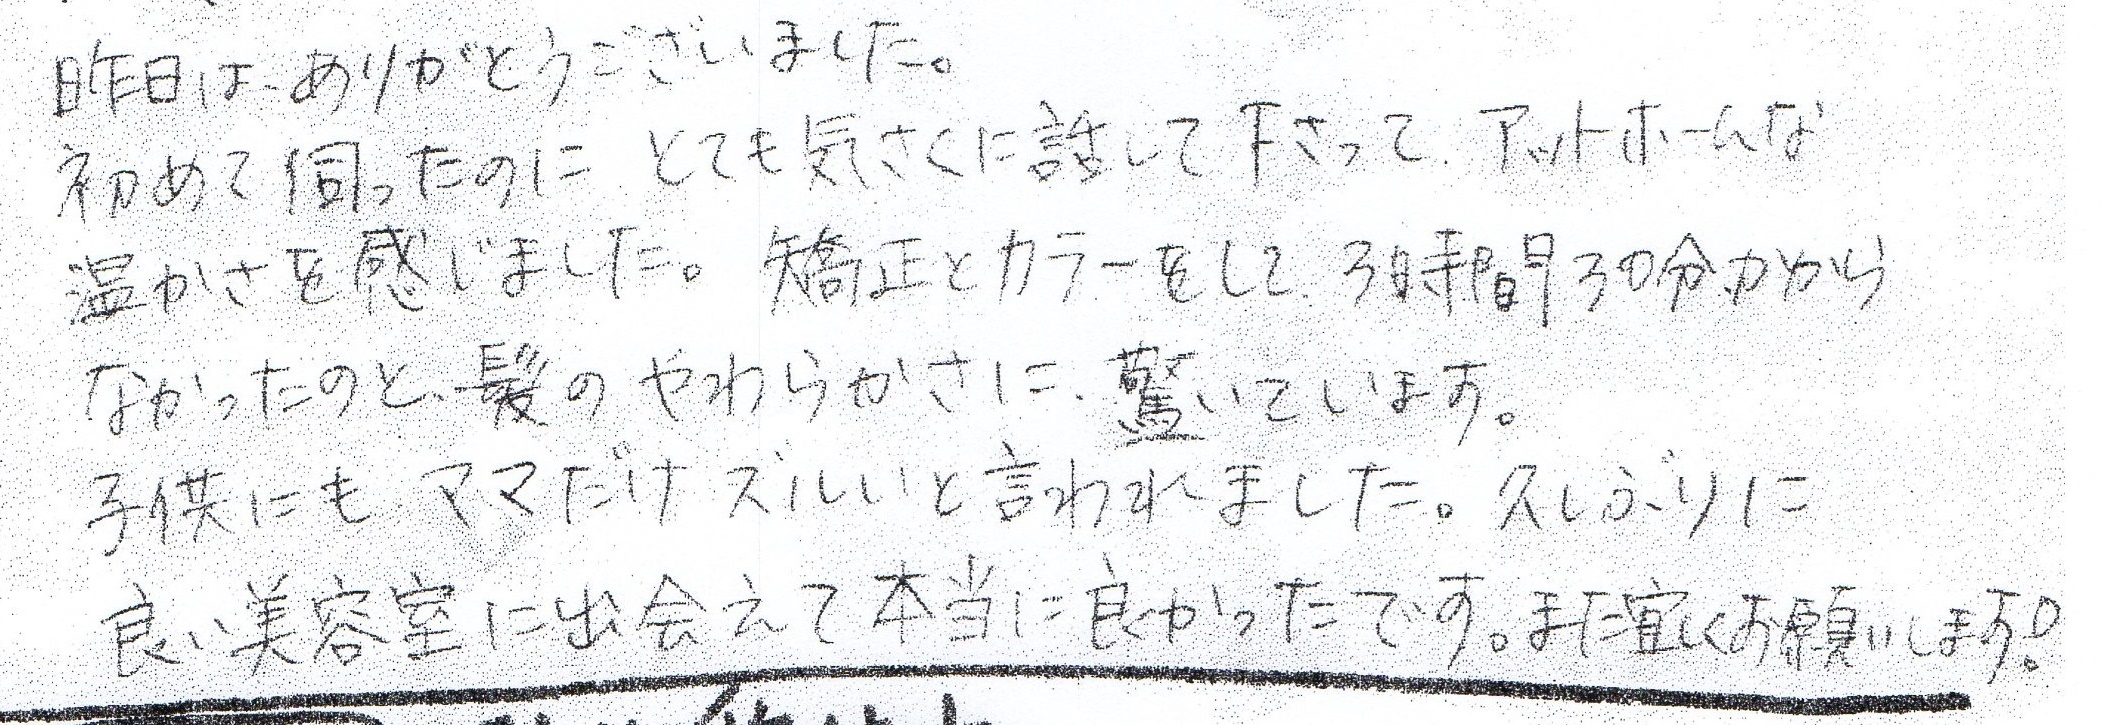 昨日は、ありがとうございました。
初めて伺ったのに とても気さくに話して下さって、アットホームな
温かさを感じました。矯正とカラーをして、3時間30分かから
なかったのと、髪のやわらかさに、驚いています。
子供にも ママだけズルいと言われました。久しぶりに
良い美容室に出会えて本当に良かったです。また宜しくお願いします!